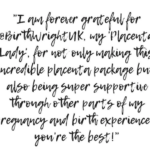 "I am forever grateful for
@BirthWrightUK, my 'Placenta
Lady', for not only making this
incredible placenta package but
also being super supportive
through other parts of my
pregnancy and birth experience,
you're the best!"